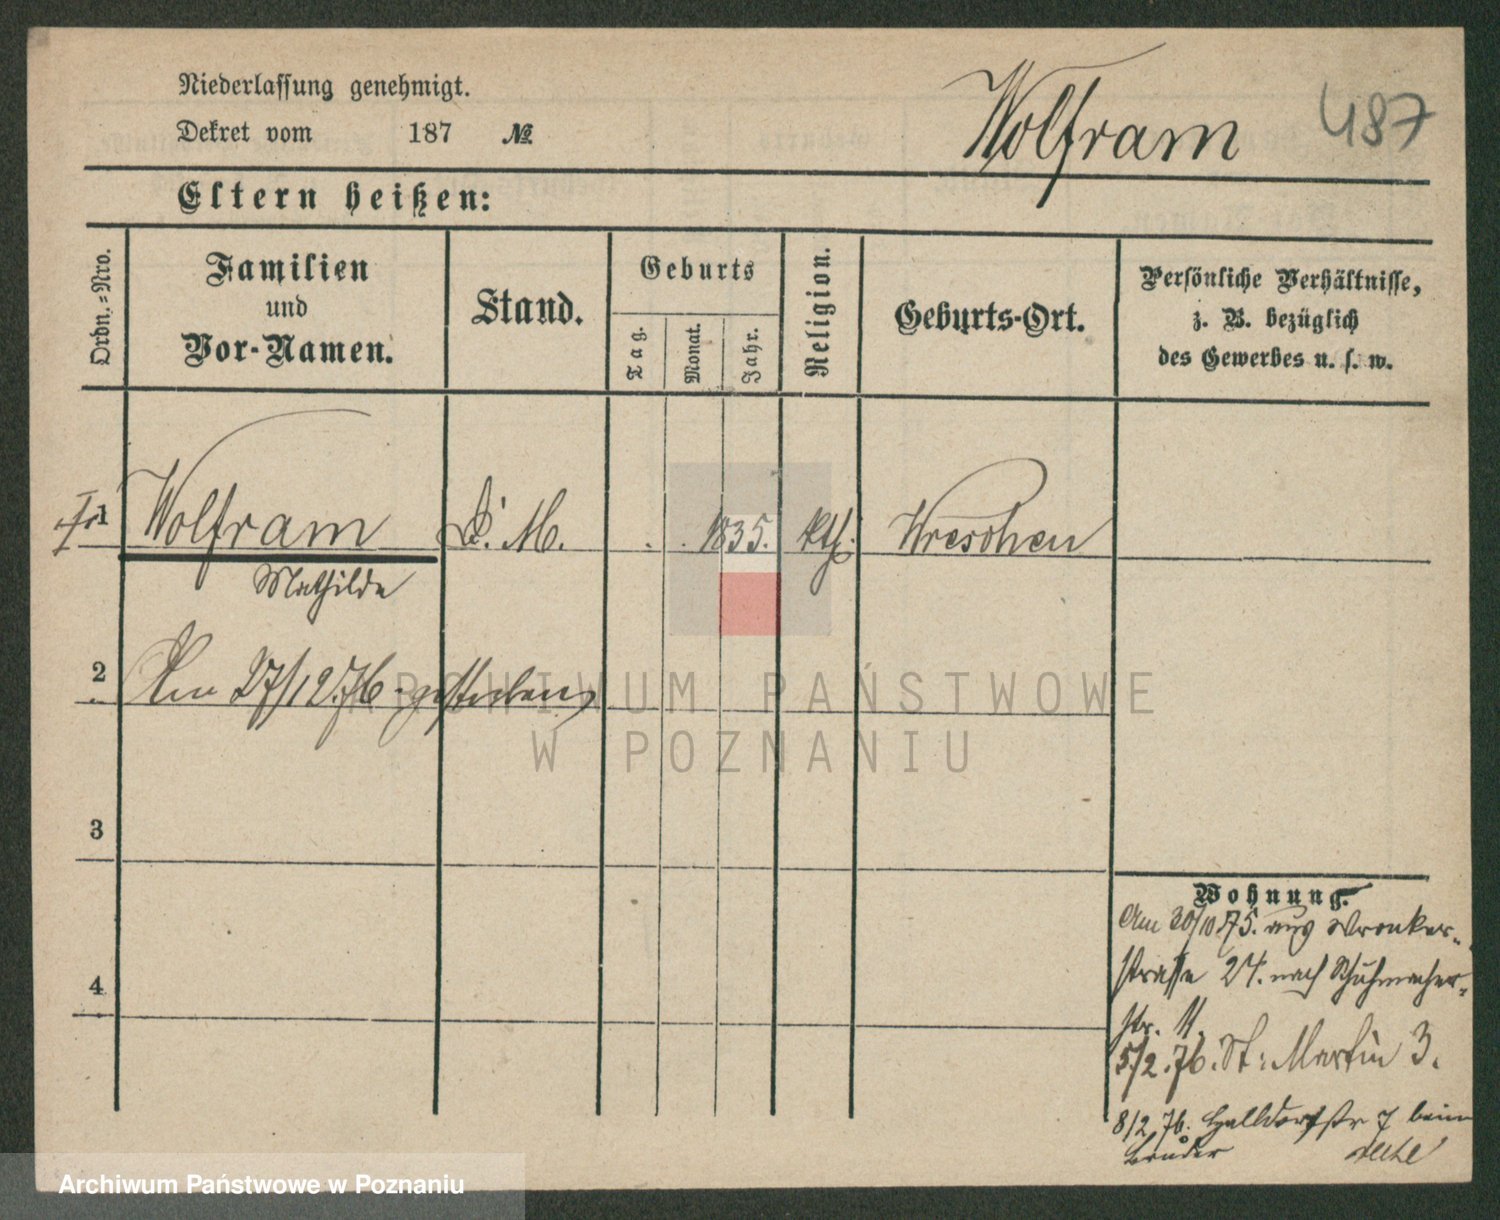 Niederlassung genehmigt.
Dekret vom 187 №
Wolfram 487
Eltern heißen:
Ordn.=Nro.
Familien
und
Vor-Namen.
Stand.
Geburts
Tag.
Monat.
Jahr.
Religion.
Geburts-Ort.
Persönliche Verhältnisse,
z. B. bezüglich
des Gewerbes u. s. w.
1 Wolfram D. M. . . 1835. kth. Wreschen
Mathilde
2 Am 27/12.76. gestorben
3
4
Wohnung.
Am 30/10.75. aus Wronker-
strasse 24. nach Schuhmacher-
str. 11.
5/2.76. St. Martin 3.
8/2 76. Halldorfstr 7 beim
Bruder
ARCHIWUM PAŃSTWOWE
W POZNANIU
Archiwum Państwowe w Poznaniu